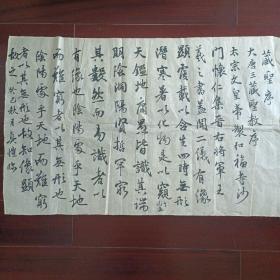 大唐三藏聖教序
太宗文皇帝製和福寺沙
門懷仁集晉右將軍王
羲之書蓋聞二儀有像
顯覆載以含生四時無形
潛寒暑以化物是以窺
天鑑地庸愚皆識其端
明陰洞陽賢哲罕窮
其數然而易識者以
有像也陰陽處乎天地
而難窮者以其無形也
陰陽處乎天地而難窮
者以其無形也故知像顯